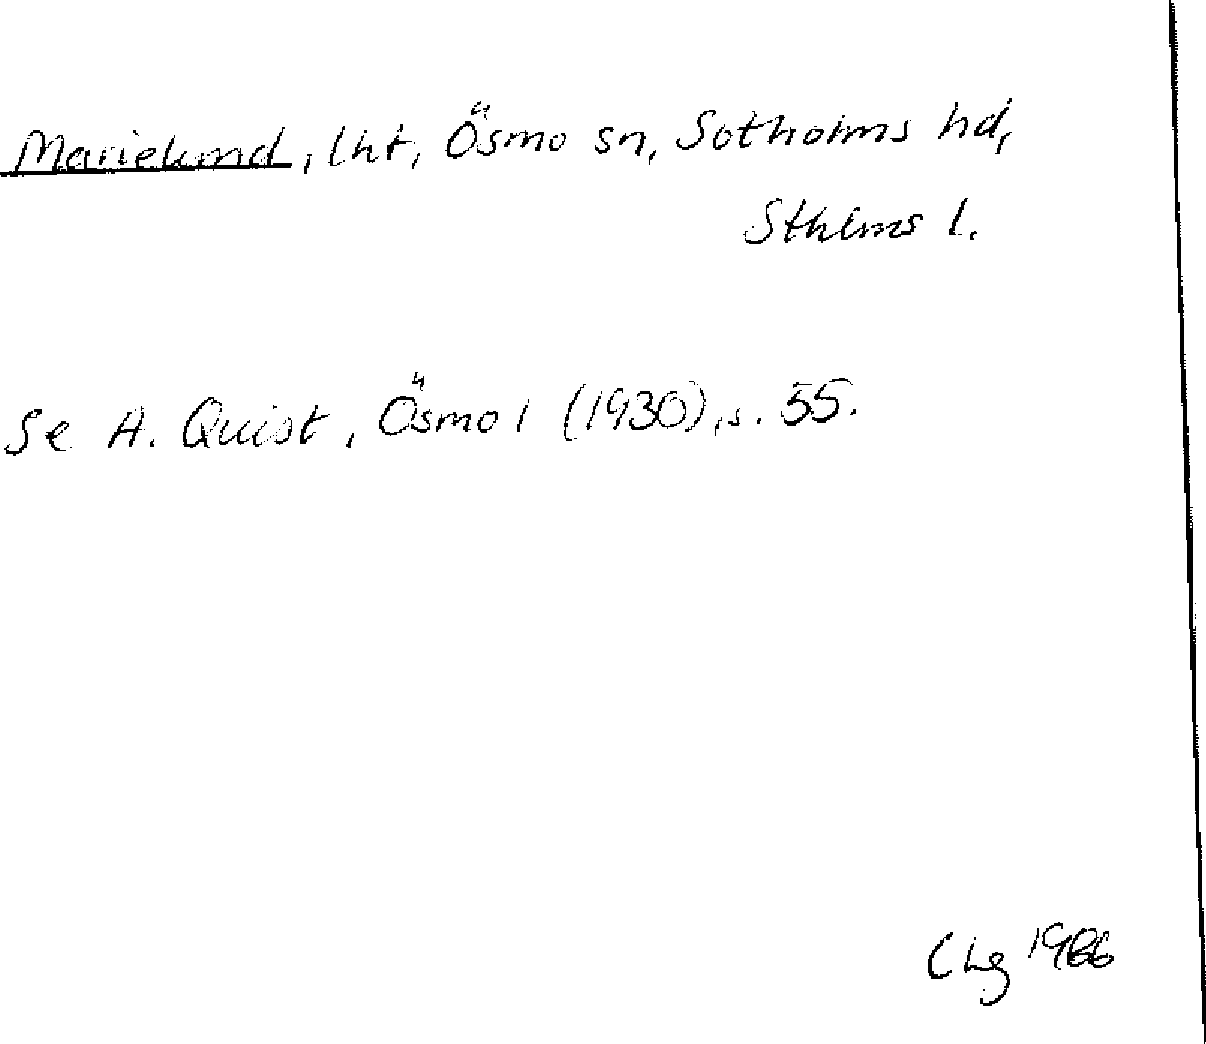 Marielund, lht, Ösmo sn, Sotholms hd,
Sthlms l.
Se A. Quist, Ösmo 1 (1930), s. 55.
CLg 1986